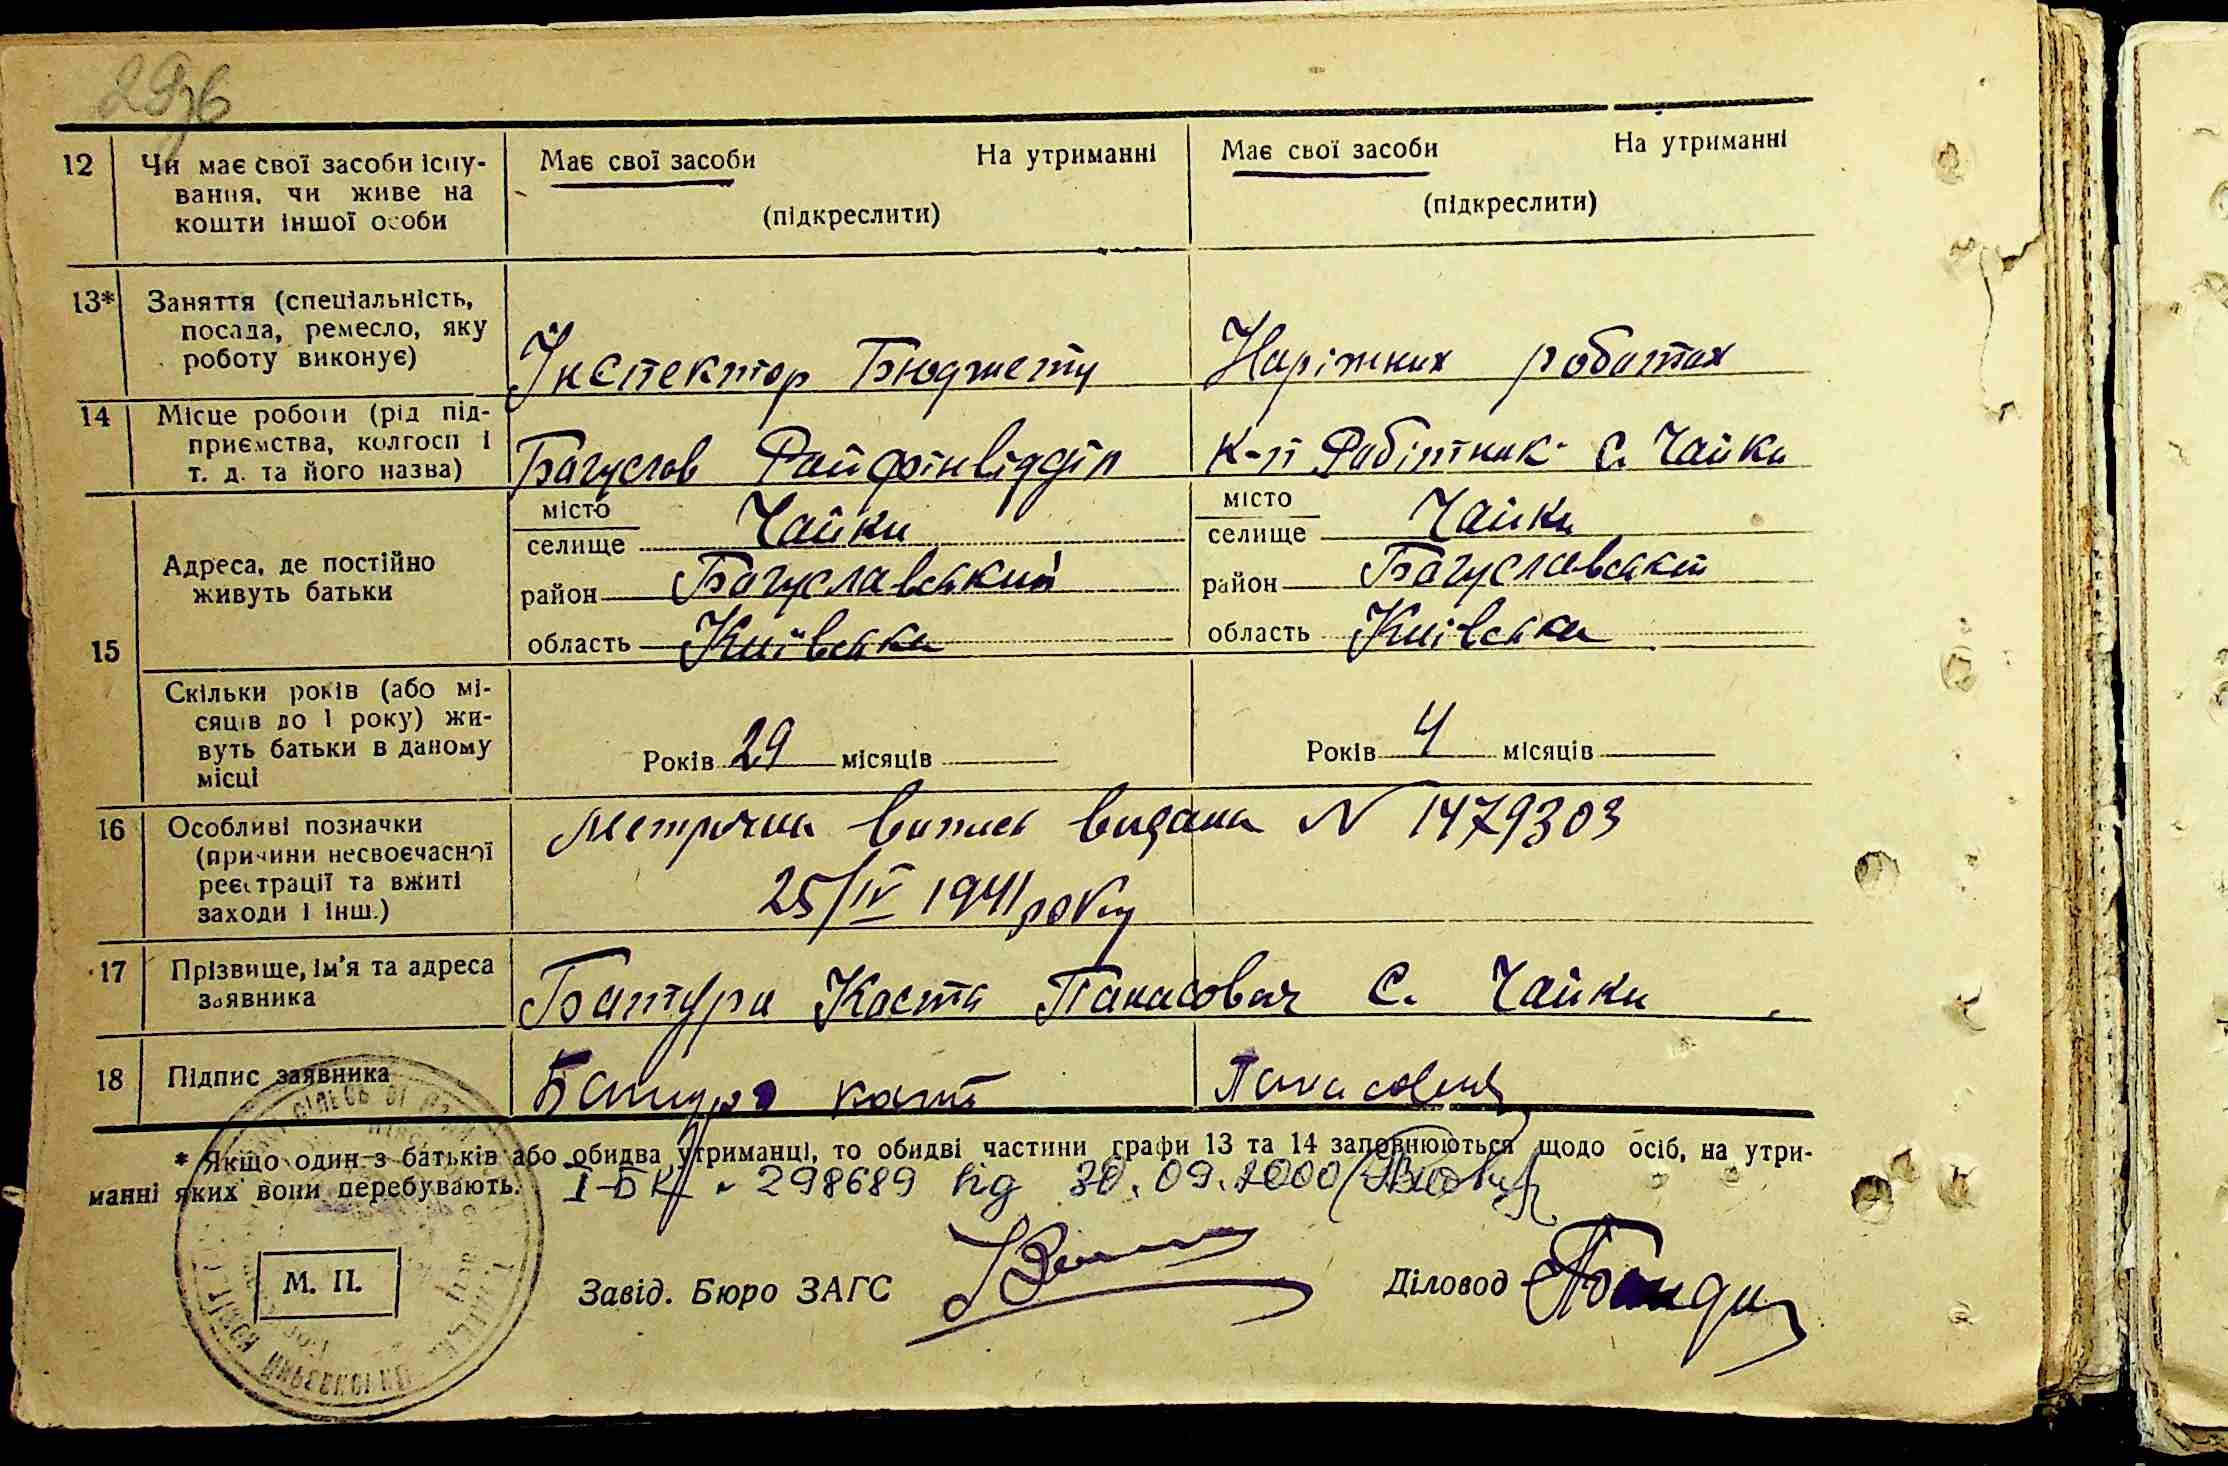 12 Чи має свої засоби існу-
вання, чи живе на
кошти іншої особи
Має свої засоби На утриманні
(підкреслити)
Має свої засоби На утриманні
(підкреслити)
13* Заняття (спеціальність,
посада, ремесло, яку
роботу виконує)
Інспектор Бюджету
Наріжних роботах
14 Місце роботи (рід під-
приємства, колгосп і
т. д. та його назва)
Богуслов Райфінвідділ
К-п Робітник С. Чайки
15 Адреса, де постійно
живуть батьки
місто
селище Чайки
район Богуславський
область Київська
місто
селище Чайки
район Богуславській
область Київська
Скільки років (або мі-
сяців до 1 року) жи-
вуть батьки в даному
місці
Років 29 місяців
Років 4 місяців
16 Особливі позначки
(причини несвоєчасної
реєстрації та вжиті
заходи і інш.)
Метрична випись видана N 1479303
25/IV 1941 року
17 Прізвище, ім'я та адреса
заявника
Бантура Коста Панасович С. Чайки
18 Підпис заявника
* Якщо один з батьків або обидва утриманці, то обидві частини графи 13 та 14 заповнюються щодо осіб, на утри-
манні яких вони перебувають.
І-БК № 298689 від 30.09.2000
М. П.
Завід. Бюро ЗАГС
Діловод